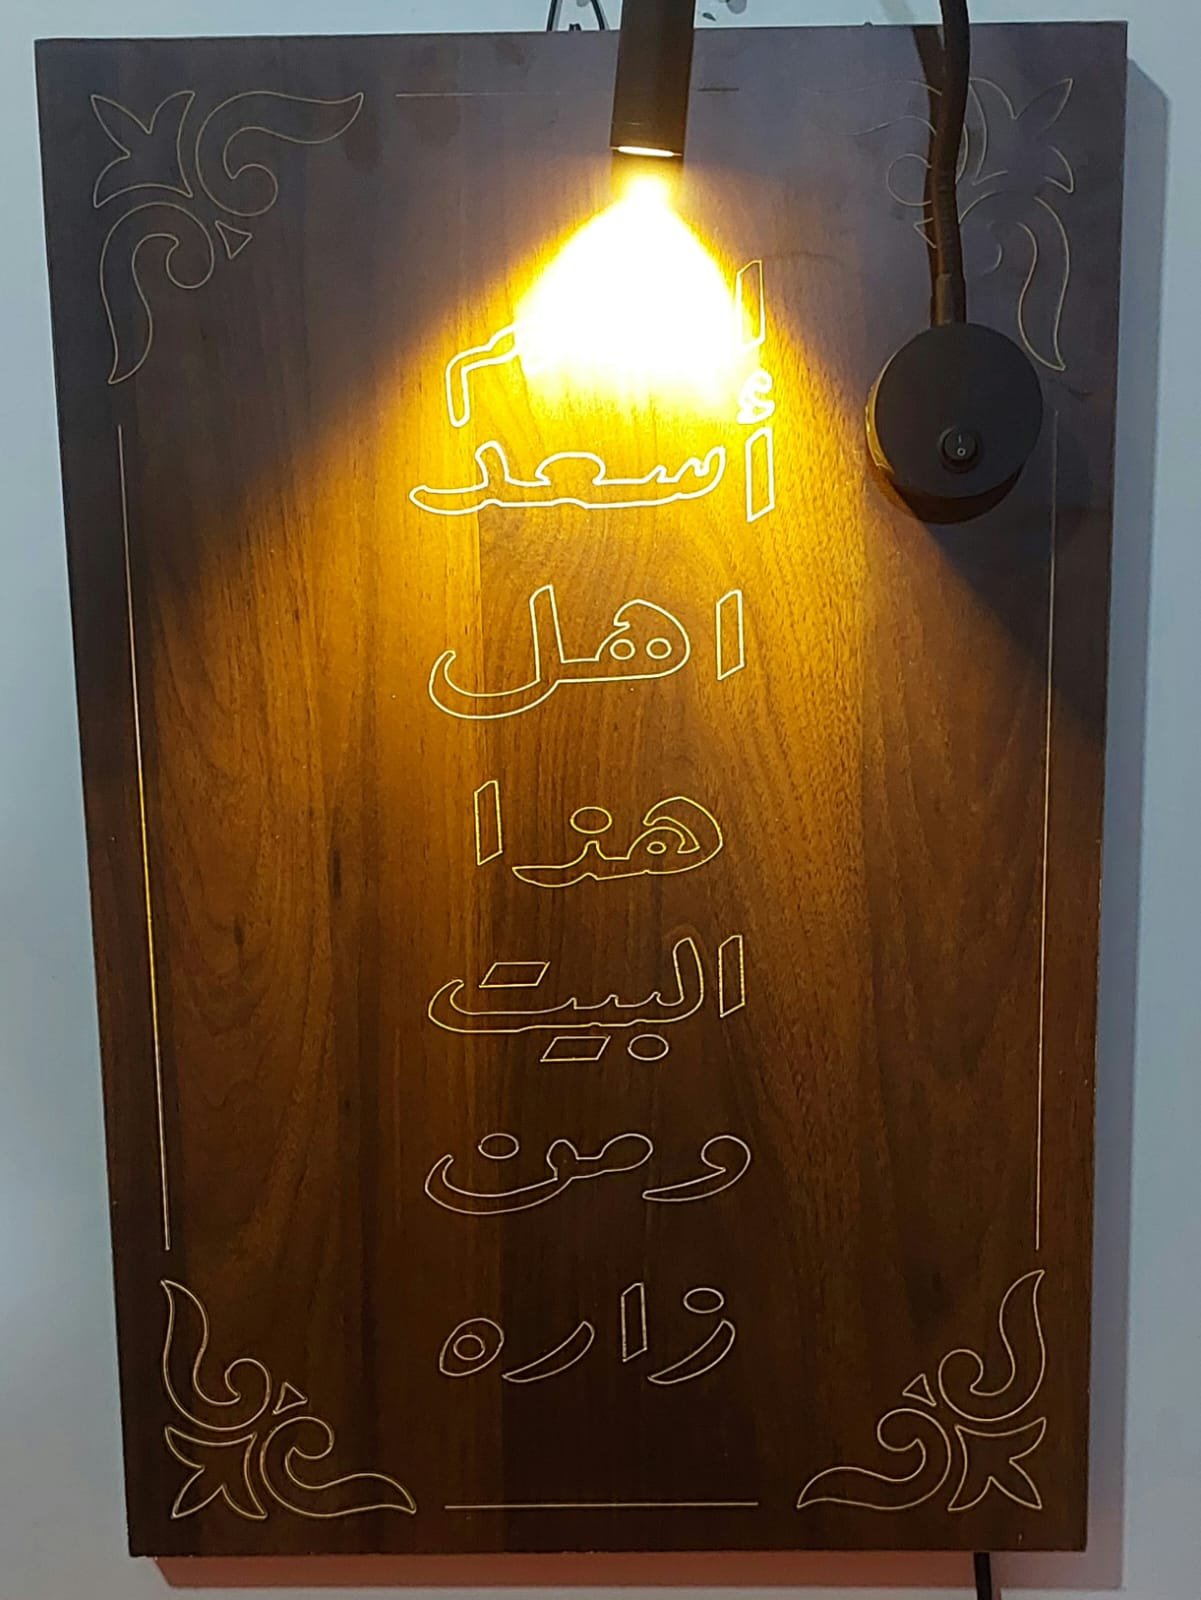 أسعد
اهل
هذا
البيت
ومن
زاره